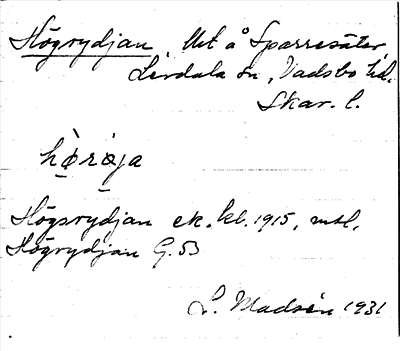 Högrydjan, Ut å Sparresäter,
Lerdala sn, Vadsbo hd.
Skar. l.
hø̀rø̠ja
Högsrydjan ek. kb. 1915, mtl.
Högrydjan G. 53
L. Madsén 1931